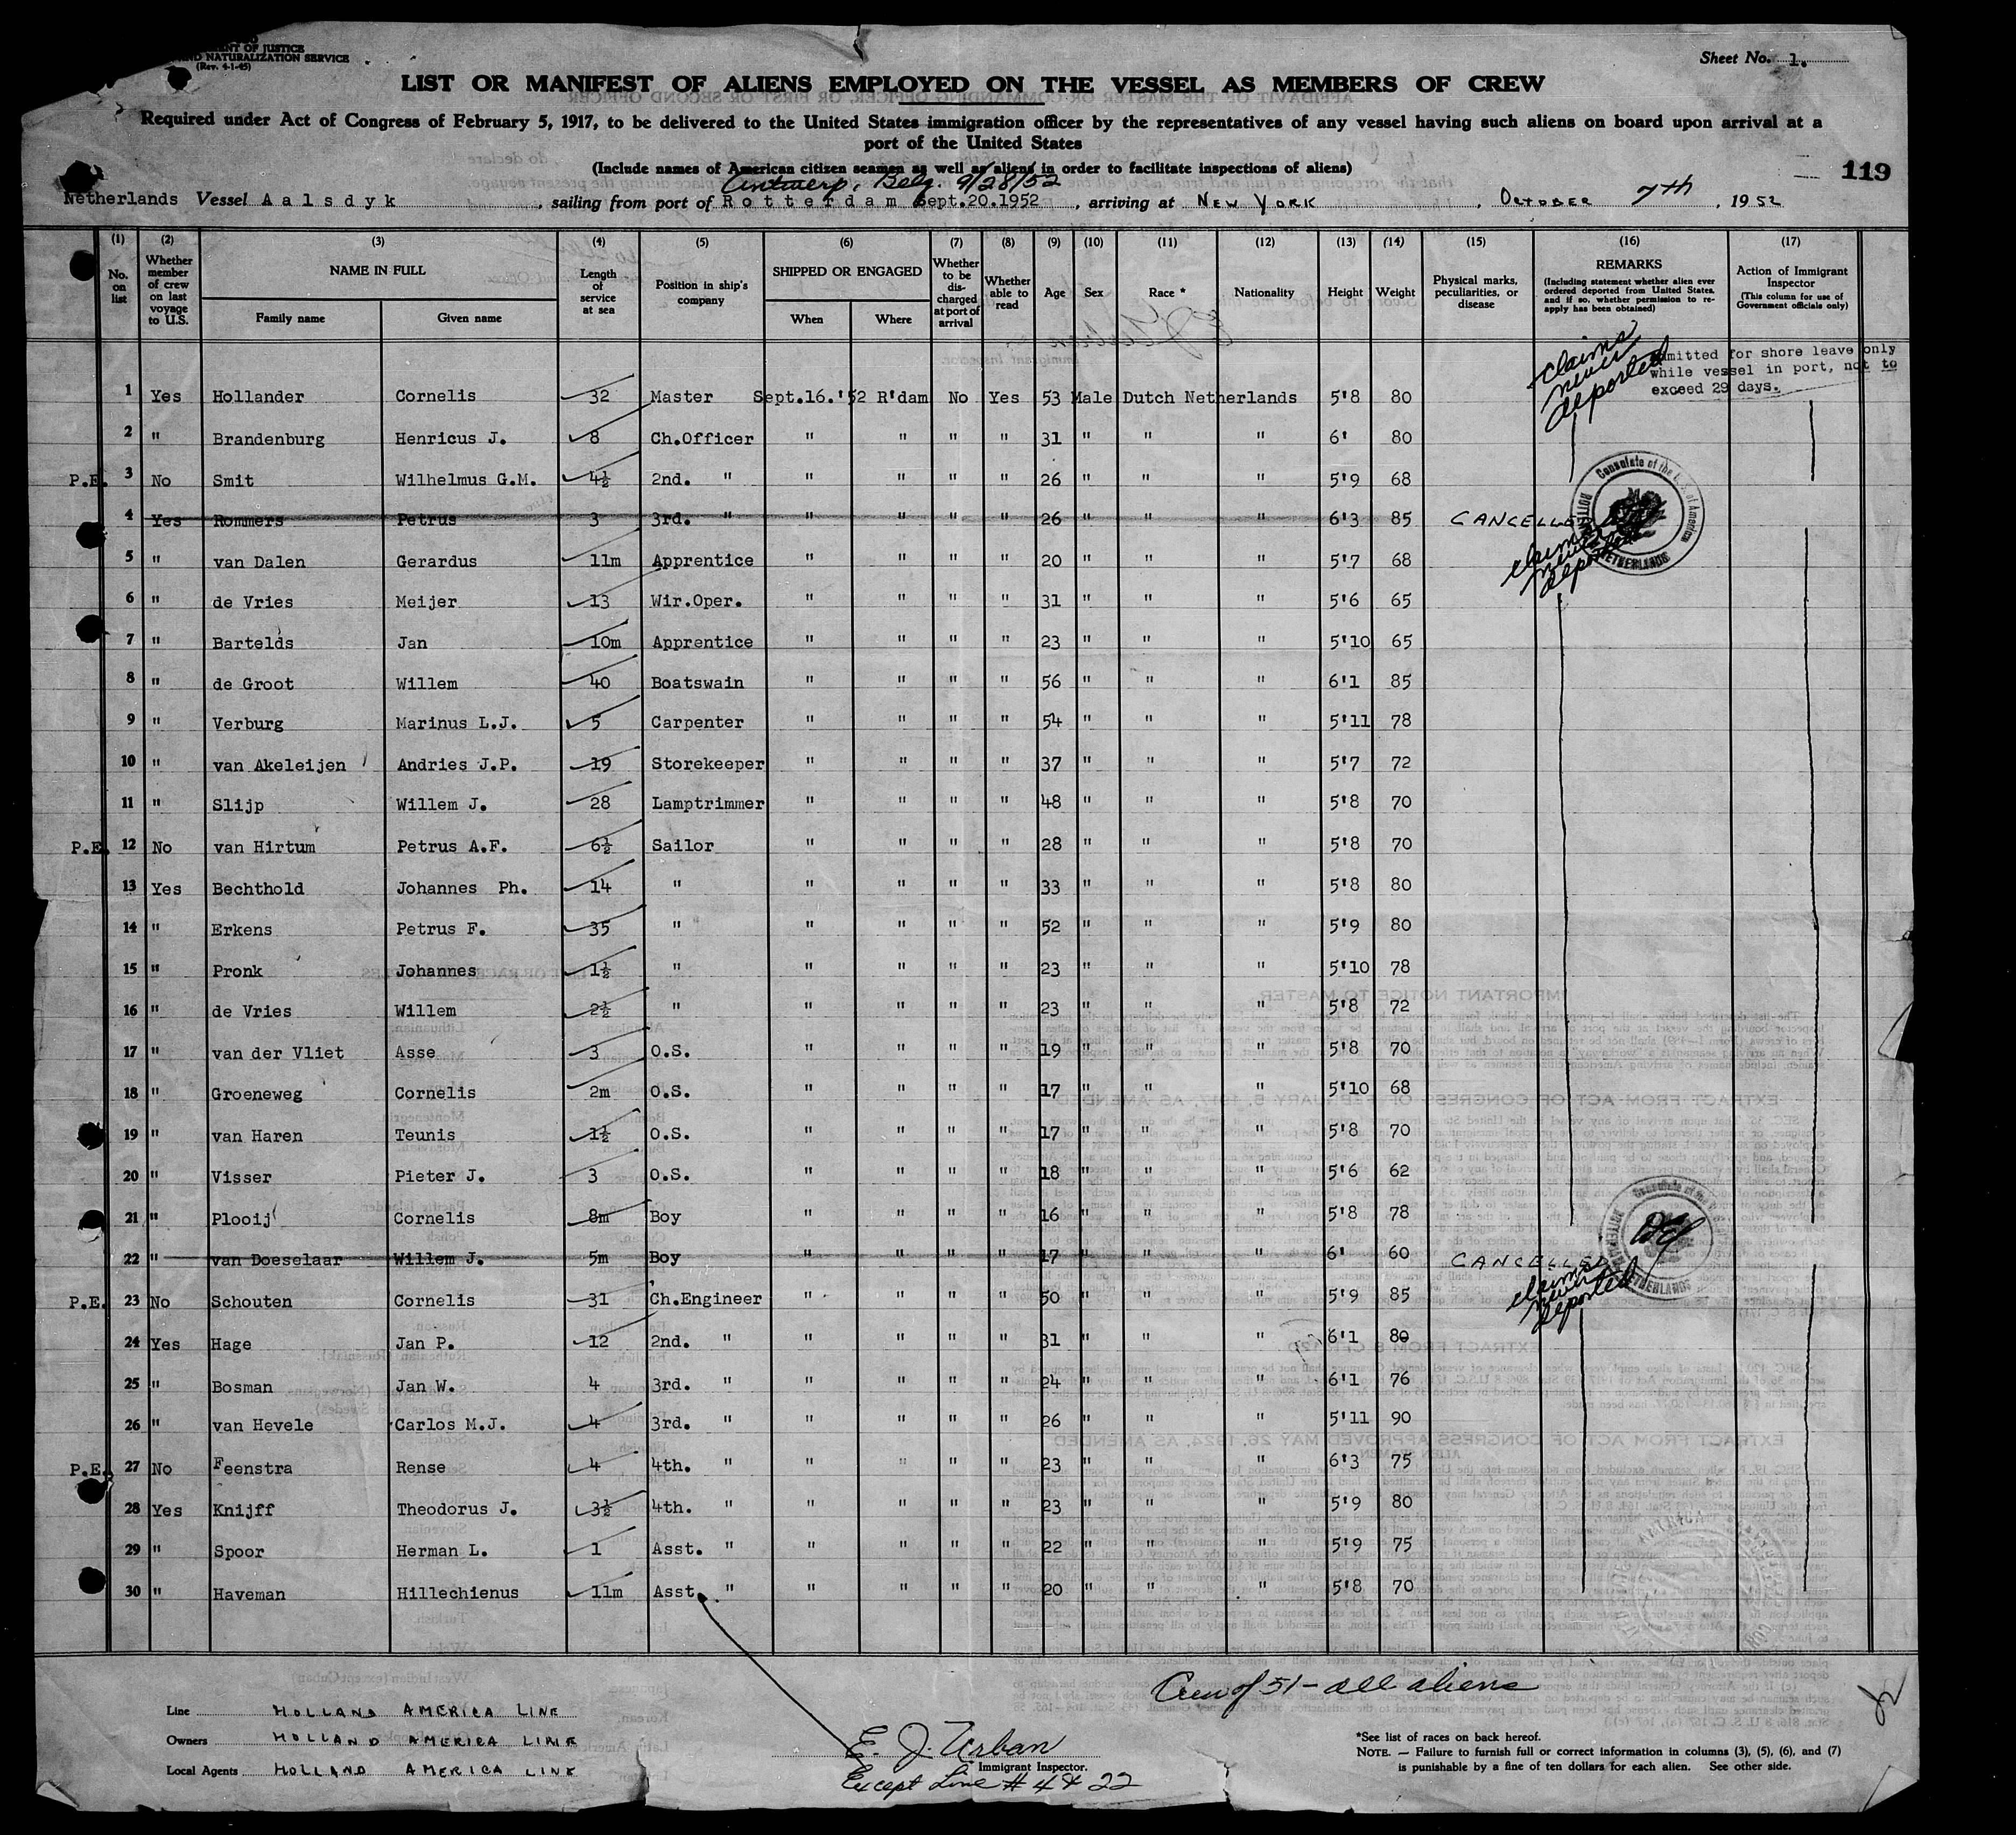 ENT OF JUSTICE
ND NATURALIZATION SERVICE
(Rev. 4-1-45)
Sheet No. 1.
LIST OR MANIFEST OF ALIENS EMPLOYED ON THE VESSEL AS MEMBERS OF CREW
Required under Act of Congress of February 5, 1917, to be delivered to the United States immigration officer by the representatives of any vessel having such aliens on board upon arrival at a
port of the United States
(Include names of American citizen seamen as well as aliens in order to facilitate inspections of aliens)
119
Antwerp, Belg. 9/28/52
Netherlands Vessel Aalsdyk, sailing from port of Rotterdam Sept.20.1952, arriving at NEW YORK, OCTOBER 7th, 1952
(1) (2) (3) (4) (5) (6) (7) (8) (9) (10) (11) (12) (13) (14) (15) (16) (17)
No. on list
Whether member of crew on last voyage to U.S.
NAME IN FULL
Family name Given name
Length of service at sea
Position in ship's company
SHIPPED OR ENGAGED
When Where
Whether to be discharged at port of arrival
Whether able to read
Age Sex Race * Nationality Height Weight
Physical marks, peculiarities, or disease
REMARKS
(Including statement whether alien ever ordered deported from United States, and if so, whether permission to re-apply has been obtained)
Action of Immigrant Inspector
(This column for use of Government officials only)
claims never deported
Admitted for shore leave only
while vessel in port, not to
exceed 29 days.
1 Yes Hollander Cornelis 32 Master Sept.16.'52 R'dam No Yes 53 Male Dutch Netherlands 5'8 80
2 " Brandenburg Henricus J. 8 Ch.Officer " " " " 31 " " " 6' 80
P.E. 3 No Smit Wilhelmus G.M. 4½ 2nd. " " " " " 26 " " " 5'9 68
4 Yes Rommers Petrus 3 3rd. " " " " " 26 " " " 6'3 85 CANCELLED
Consulate of the U.S. of America
ROTTERDAM
NETHERLANDS
claims never deported
5 " van Dalen Gerardus 11m Apprentice " " " " 20 " " " 5'7 68
6 " de Vries Meijer 13 Wir.Oper. " " " " 31 " " " 5'6 65
7 " Bartelds Jan 10m Apprentice " " " " 23 " " " 5'10 65
8 " de Groot Willem 40 Boatswain " " " " 56 " " " 6'1 85
9 " Verburg Marinus L.J. 5 Carpenter " " " " 54 " " " 5'11 78
10 " van Akeleijen Andries J.P. 19 Storekeeper " " " " 37 " " " 5'7 72
11 " Slijp Willem J. 28 Lamptrimmer " " " " 48 " " " 5'8 70
P.E. 12 No van Hirtum Petrus A.F. 6½ Sailor " " " " 28 " " " 5'8 70
13 Yes Bechthold Johannes Ph. 14 " " " " " 33 " " " 5'8 80
14 " Erkens Petrus F. 35 " " " " " 52 " " " 5'9 80
15 " Pronk Johannes 1½ " " " " " 23 " " " 5'10 78
16 " de Vries Willem 2½ " " " " " 23 " " " 5'8 72
17 " van der Vliet Asse 3 O.S. " " " " 19 " " " 5'8 70
18 " Groeneweg Cornelis 2m O.S. " " " " 17 " " " 5'10 68
19 " van Haren Teunis 1½ O.S. " " " " 17 " " " 5'8 70
20 " Visser Pieter J. 3 O.S. " " " " 18 " " " 5'6 62
21 " Plooij Cornelis 8m Boy " " " " 16 " " " 5'8 78
22 " van Doeselaar Willem J. 5m Boy " " " " 17 " " " 6' 60 CANCELLED
NETHERLANDS
claims never deported
P.E. 23 No Schouten Cornelis 31 Ch.Engineer " " " " 50 " " " 5'9 85
24 Yes Hage Jan P. 12 2nd. " " " " " 31 " " " 6'1 80
25 " Bosman Jan W. 4 3rd. " " " " " 24 " " " 6'1 76
26 " van Hevele Carlos M.J. 4 3rd. " " " " " 26 " " " 5'11 90
P.E. 27 No Feenstra Rense 4 4th. " " " " " 23 " " " 6'3 75
28 Yes Knijff Theodorus J. 3½ 4th. " " " " " 23 " " " 5'9 80
29 " Spoor Herman L. 1 Asst. " " " " " 22 " " " 5'9 75
30 " Haveman Hillechienus 11m Asst. " " " " " 20 " " " 5'8 70
Crew of 51 - all aliens
Line HOLLAND AMERICA LINE
Owners HOLLAND AMERICA LINE
Local Agents HOLLAND AMERICA LINE
E. J. Urban
Immigrant Inspector.
Except Line # 4 & 22
*See list of races on back hereof.
NOTE. — Failure to furnish full or correct information in columns (3), (5), (6), and (7)
is punishable by a fine of ten dollars for each alien. See other side.